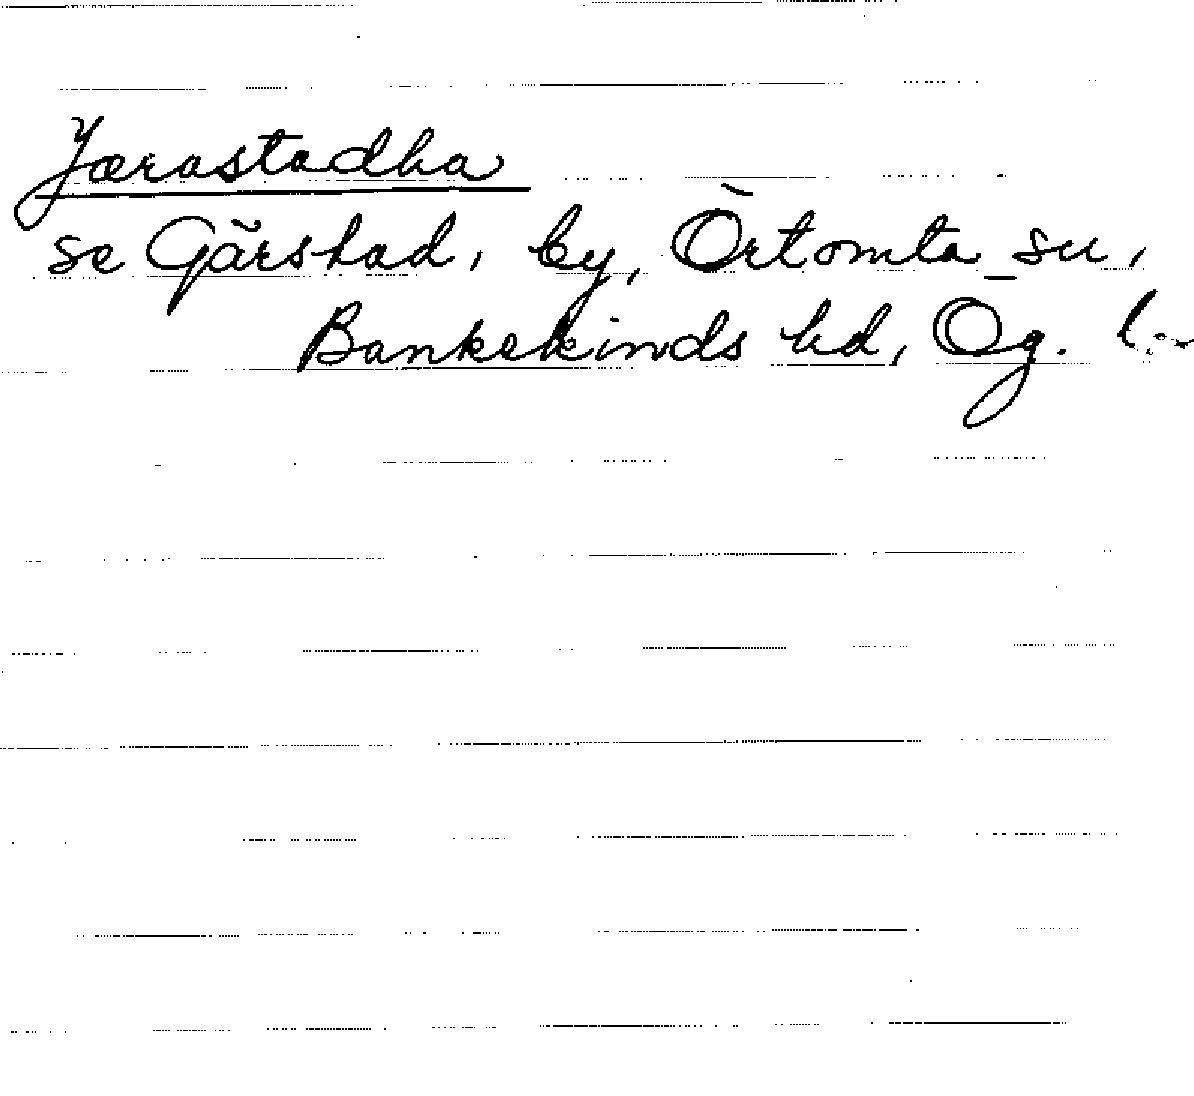 Jærastadha
se Gärstad, by, Örtomta sn,
Bankekinds hd, Ög. l.